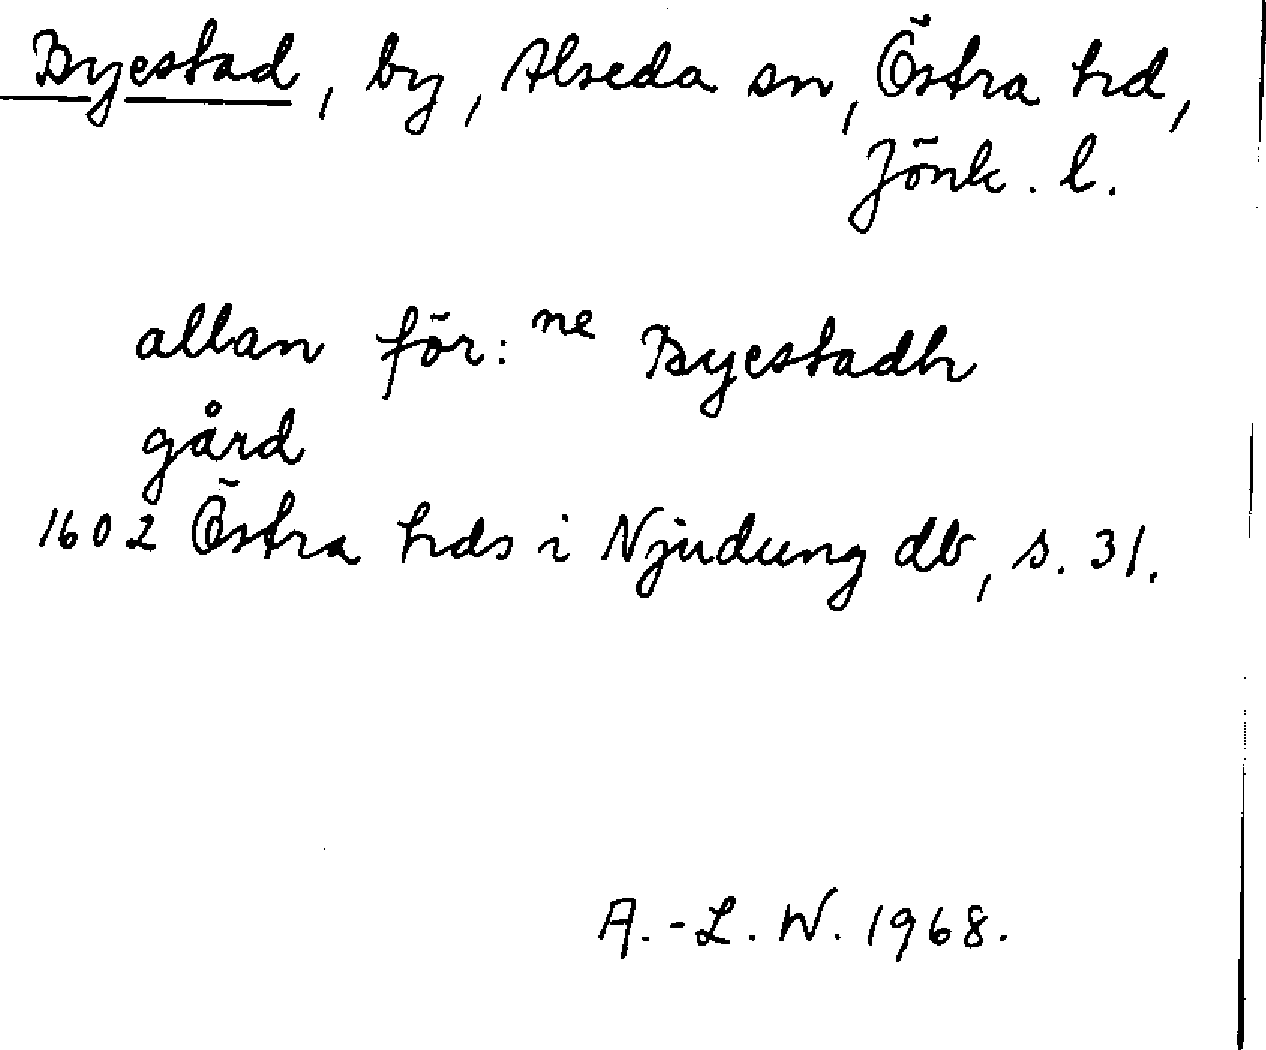 Byestad, by, Alseda sn, Östra hd,
Jönk. l.
allan för:ne Byestadh
gård
1602 Östra hds i Njudung db, s. 31.
A.-L. W. 1968.